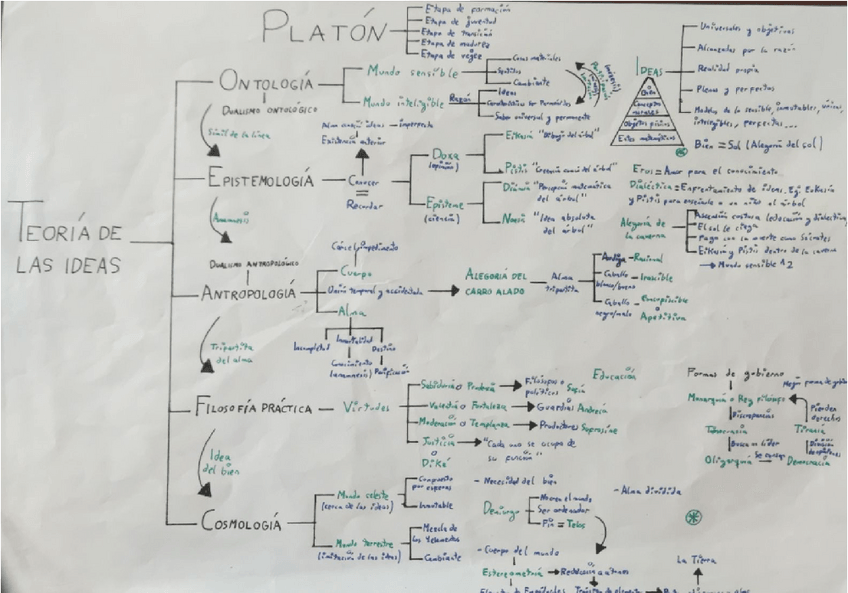 PLATÓN
Etapa de formación
Etapa de juventud
Etapa de transición
Etapa de madurez
Etapa de vejez
TEORÍA DE
LAS IDEAS
ONTOLOGÍA
DUALISMO ONTOLÓGICO
Mundo sensible
Cosas materiales
Sentidos
Cambiante
Mundo inteligible
Razón
Ideas
Características ser Parménides
Saber universal y permanente
IDEAS
Bien
Conceptos
morales
Objetos físicos
Entes matemáticos
Universales y objetivas
Alcanzadas por la razón
Realidad propia
Plenas y perfectas
Modelos de lo sensible, inmutables, únicas,
inteligibles, perfectas...
Bien = Sol (Alegoría del sol)
Símil de la línea
EPISTEMOLOGÍA
Conocer
=
Recordar
Existencia anterior
Imperfecto
Doxa
(opinión)
Eikasía "Dibujo del árbol"
Pistis "Creencia común del árbol"
Episteme
(ciencia)
Diánoia "Percepción matemática
del árbol"
Noesis "Idea absoluta
del árbol"
Eros = Amor para el conocimiento
Dialéctica = Enfrentamiento de ideas. Ej: Eikasía
y Pistis para enseñarle a un niño el árbol
Alegoría de
la caverna
Ascensión costosa (educación y dialéctica)
El sol le ciega
Paga con su muerte como Sócrates
Eikasía y Pistis dentro de la caverna
→ Mundo sensible
Anamnesis
DUALISMO ANTROPOLÓGICO
ANTROPOLOGÍA
Cuerpo
Unión temporal y accidental
Alma
Incompletud
Inmortalidad
Destino
Conocimiento
(anamnesis)
Purificación
ALEGORÍA DEL
CARRO ALADO
Alma
tripartita
Auriga - Racional
Caballo
blanco/bueno
- Irascible
Caballo
negro/malo
- Concupiscible
Apetitiva
Tripartita
del alma
FILOSOFÍA PRÁCTICA
Virtudes
Sabiduría o Prudencia → Filósofos o
políticos
Sofía
Valentía o Fortaleza → Guardias Andreía
Moderación o Templanza → Productores Sofrosine
Justicia → "Cada uno se ocupa de
su función"
o
Diké
Educación
Formas de gobierno
Mejor forma de gobierno
Monarquía o Rey filósofo
Discrepancias
Timocracia
Busca un líder
Oligarquía
Democracia
Tiranía
Pierden
derechos
Idea
del bien
COSMOLOGÍA
Mundo celeste
(cerca de las ideas)
Compuesto
por esferas
Inmutable
Mundo terrestre
(imitación de las ideas)
Mezcla de
los 4 elementos
Cambiante
- Necesidad del bien
Demiurgo
Ser ordenador
Fin = Telos
- Alma dividida
- Cuerpo del mundo
Estereometría
La Tierra